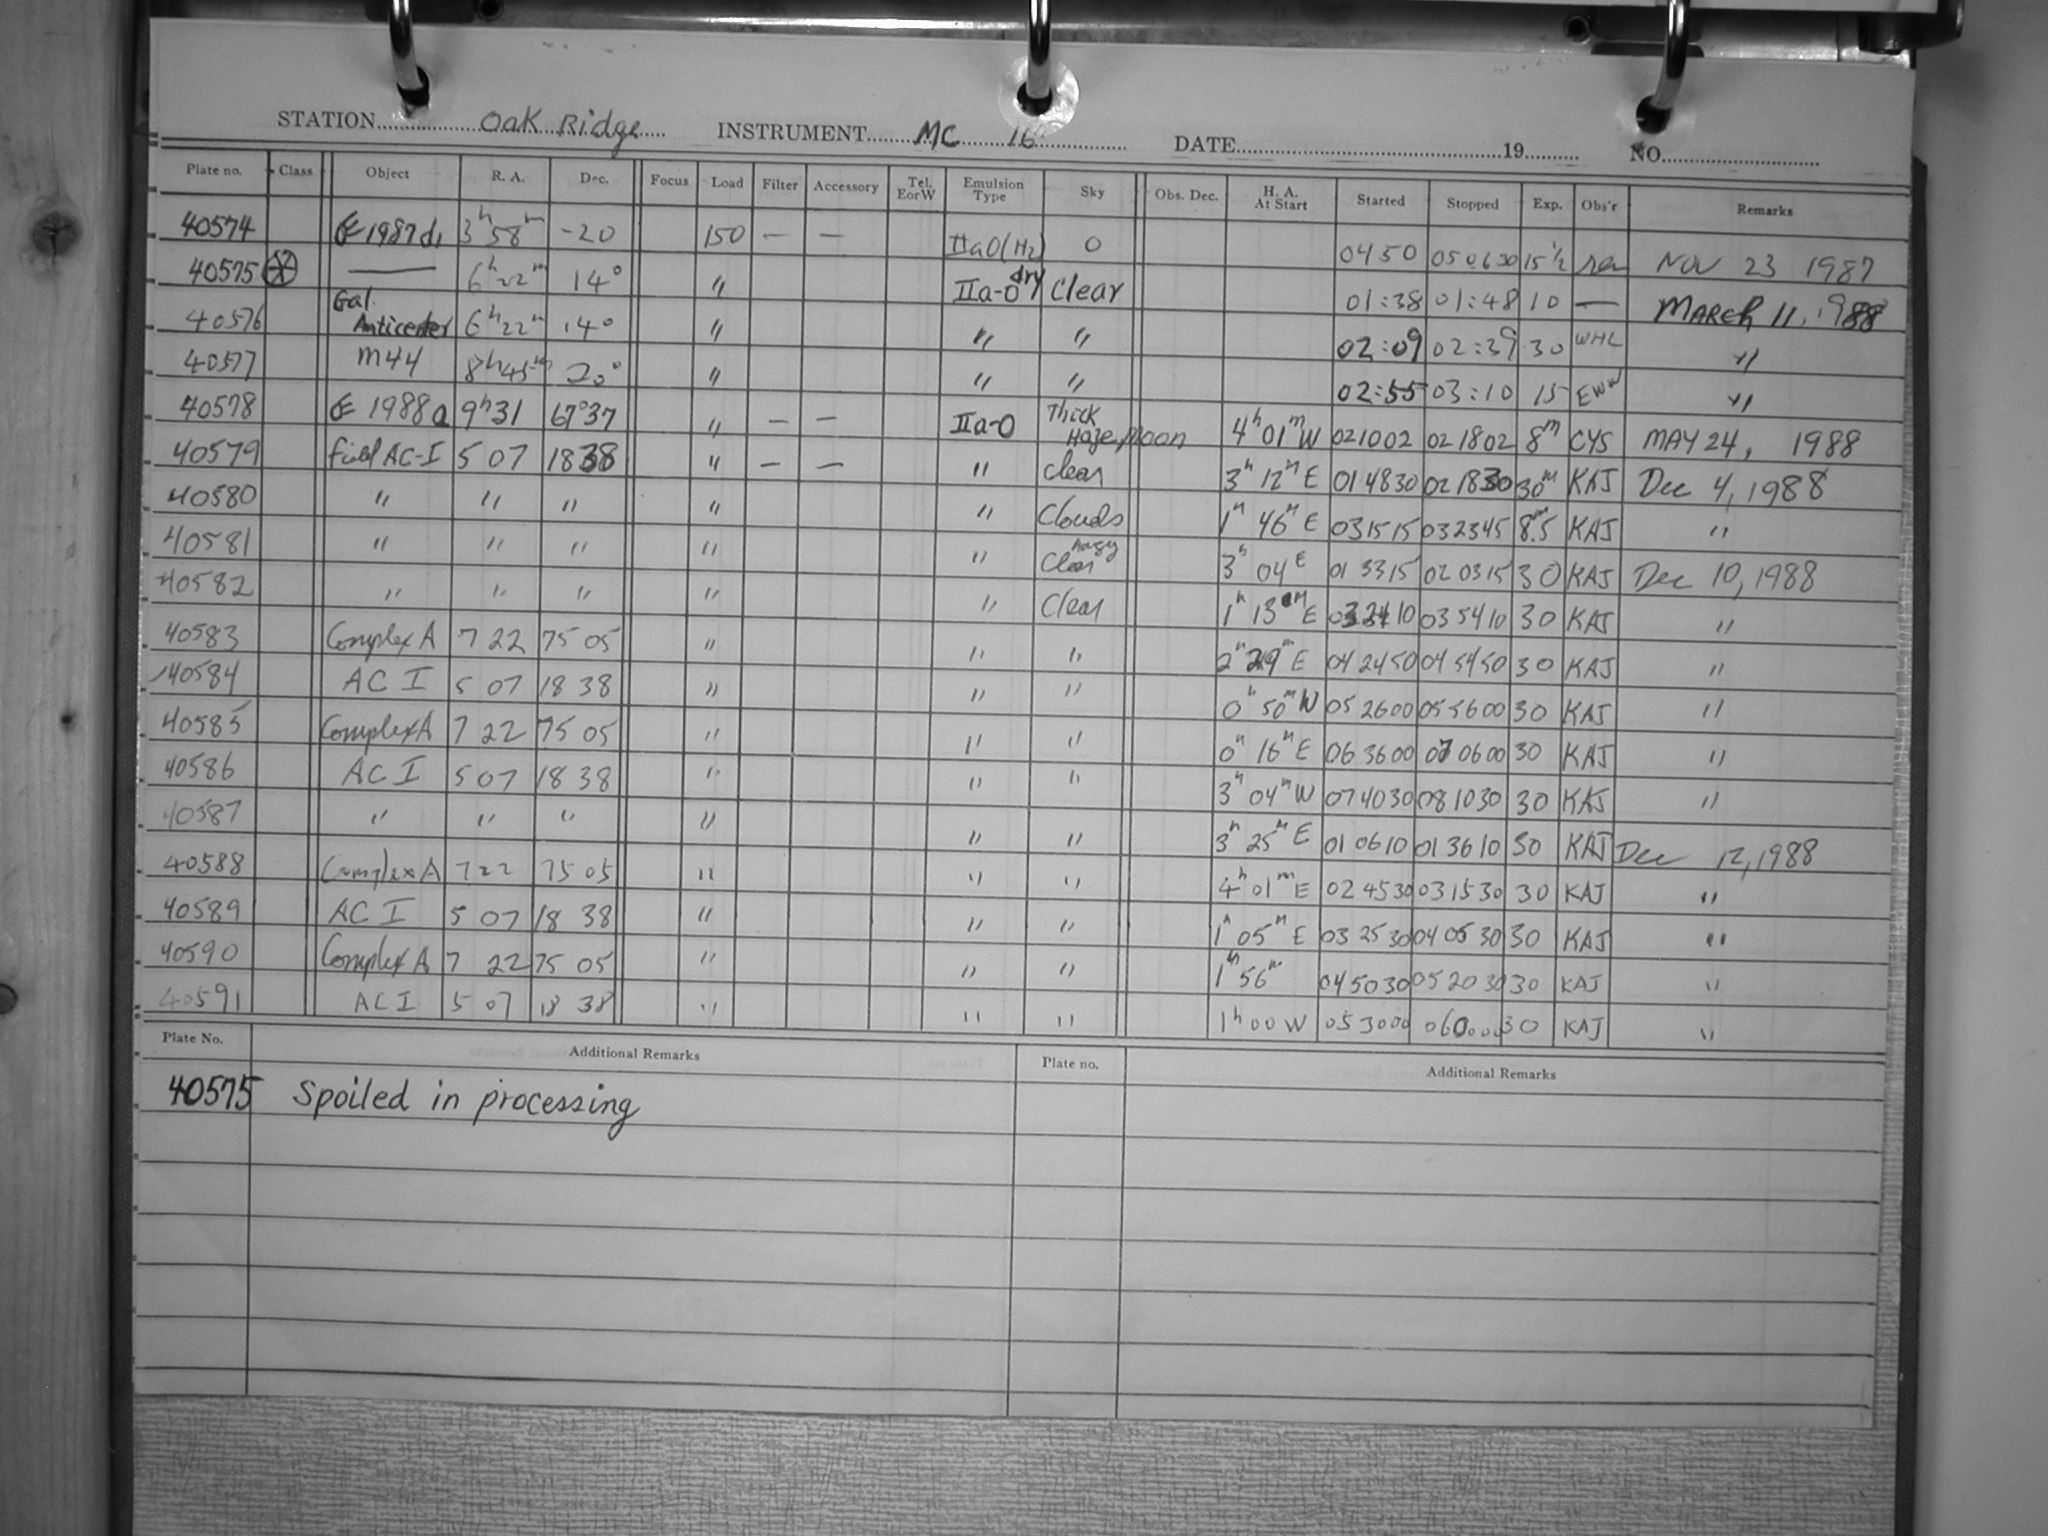 STATION Oak Ridge INSTRUMENT MC 16 DATE 19 NO
Plate no. Class Object R. A. Dec. Focus Load Filter Accessory Tel. EorW Emulsion Type Sky Obs. Dec. H. A. At Start Started Stopped Exp. Obs'r Remarks
40574 1987d1 3h 58m -20 150 — — IIaO(H2) 0 0450 050630 15 1/2 Nov 23 1987
40575 — 6h 22m 14° " IIa-O dry Clear 01:38 01:48 10 — March 11, 1988
40576 Gal. Anticenter 6h 22m 14° " " " 02:09 02:39 30 WHL "
40577 M44 8h 45m 20° " " " 02:55 03:10 15 EWW "
40578 1988a 9h 31 67°37 " — — IIa-O Thick Haze, moon 4h 01m W 021002 021802 8m CYS MAY 24, 1988
40579 Field AC-I 5 07 18 38 " — — " Clear 3h 12m E 014830 021830 30m KAJ Dec 4, 1988
40580 " " " " " Clouds 1h 46m E 031515 032345 8m.5 KAJ "
40581 " " " " " hazy Clear 3h 04 E 013315 020315 30 KAJ Dec 10, 1988
40582 " " " " " Clear 1h 13m E 032410 035410 30 KAJ "
40583 Complex A 7 22 75 05 " " " 2h 29m E 042450 045450 30 KAJ "
40584 AC I 5 07 18 38 " " " 0h 50m W 052600 055600 30 KAJ "
40585 Complex A 7 22 75 05 " " " 0h 16m E 063600 070600 30 KAJ "
40586 AC I 5 07 18 38 " " " 3h 04m W 074030 081030 30 KAJ "
40587 " " " " " " 3h 25m E 010610 013610 30 KAJ Dec 12, 1988
40588 Complex A 7 22 75 05 " " " 4h 01m E 024530 031530 30 KAJ "
40589 AC I 5 07 18 38 " " " 1h 05m E 032530 040530 30 KAJ "
40590 Complex A 7 22 75 05 " " " 1h 56m 045030 052030 30 KAJ "
40591 AC I 5 07 18 38 " " " 1h 00 W 053000 060000 30 KAJ "
Plate No. Additional Remarks Plate no. Additional Remarks
40575 Spoiled in processing